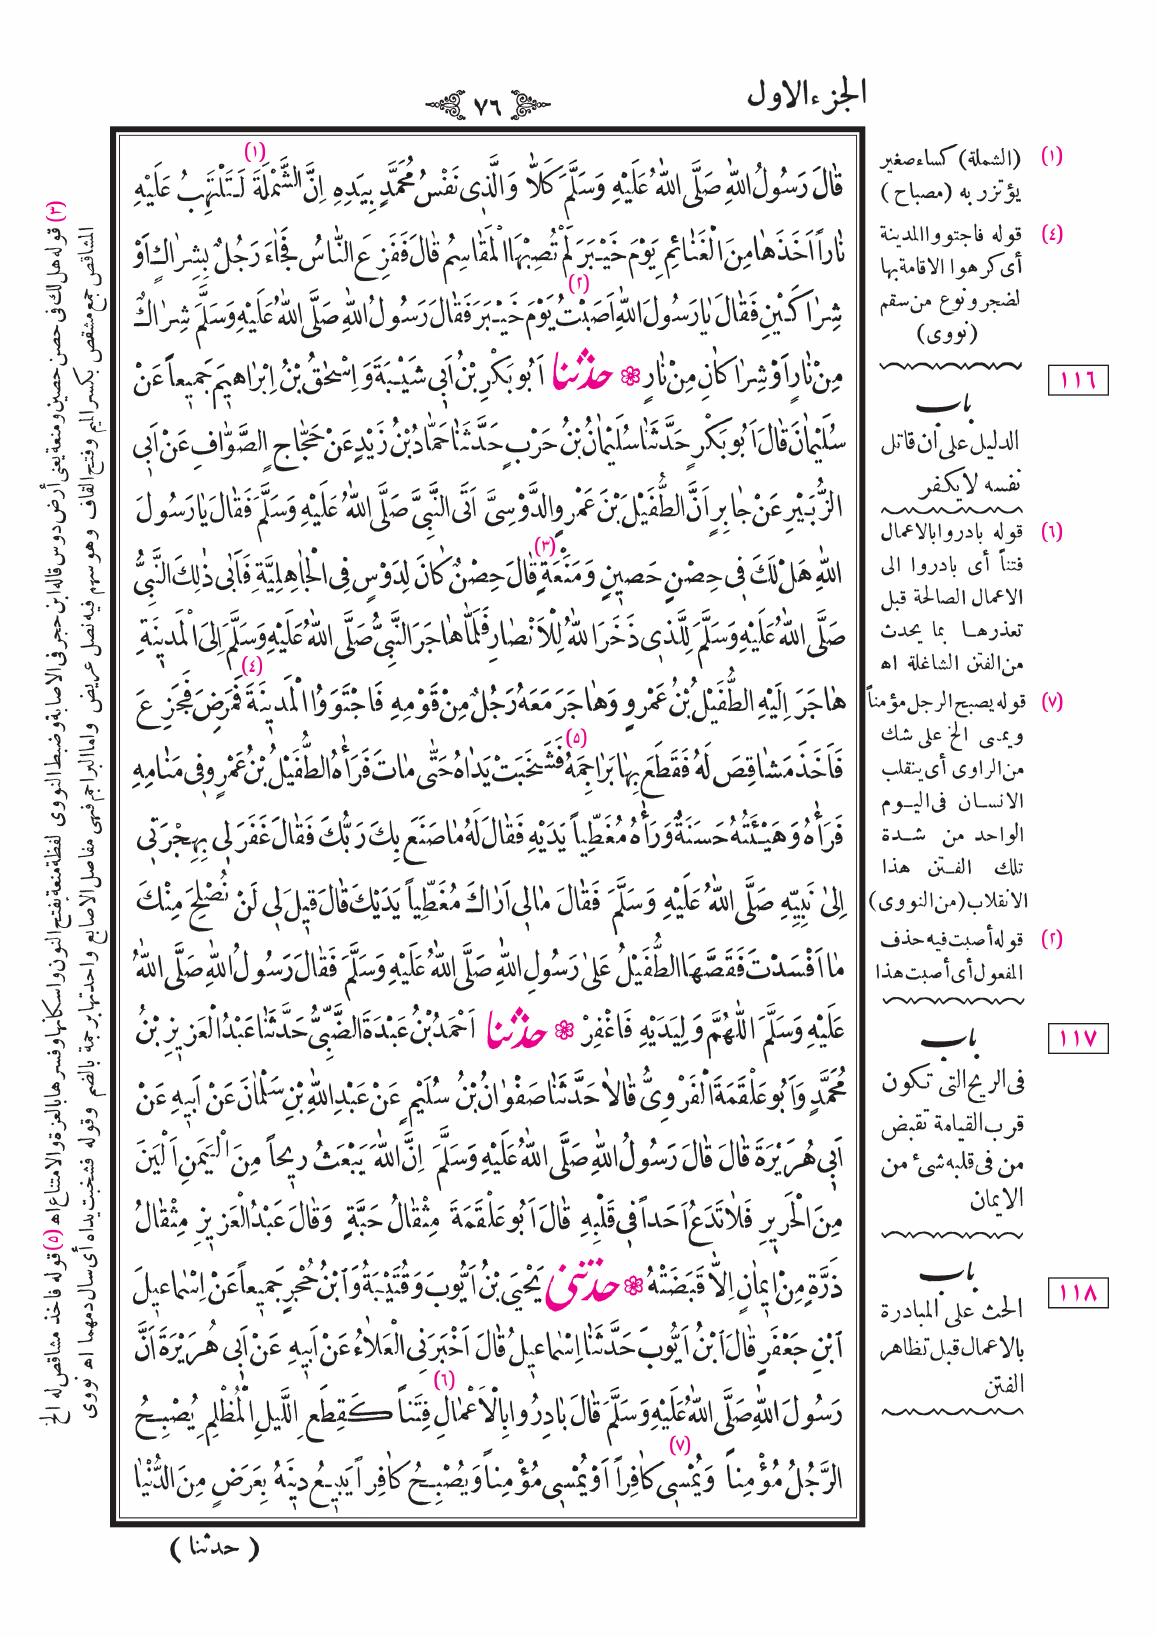 الجزء الاول
٧٦
(١)
قَالَ رَسُولُ اللّٰهِ صَلَّى اللّٰهُ عَلَيْهِ وَسَلَّمَ كَلَّا وَالَّذِى نَفْسُ مُحَمَّدٍ بِيَدِهِ اِنَّ الشَّمْلَةَ لَتَلْتَهِبُ عَلَيْهِ
نَاراً اَخَذَهَا مِنَ الْغَنَائِمِ يَوْمَ خَيْبَرَ لَمْ تُصِبْهَا الْمَقَاسِمُ قَالَ فَفَزِعَ النَّاسُ فَجَاءَ رَجُلٌ بِشِرَاكٍ اَوْ
(٢)
شِرَاكَيْنِ فَقَالَ يَارَسُولَ اللّٰهِ اَصَبْتُ يَوْمَ خَيْبَرَ فَقَالَ رَسُولُ اللّٰهِ صَلَّى اللّٰهُ عَلَيْهِ وَسَلَّمَ شِرَاكٌ
مِنْ نَارٍ اَوْ شِرَاكَانِ مِنْ نَارٍ حَدَّثَنَا اَبُوبَكْرِ بْنُ اَبِى شَيْبَةَ وَاِسْحٰقُ بْنُ اِبْرَاهِيمَ جَمِيعاً عَنْ
سُلَيْمَانَ قَالَ اَبُوبَكْرٍ حَدَّثَنَا سُلَيْمَانُ بْنُ حَرْبٍ حَدَّثَنَا حَمَّادُ بْنُ زَيْدٍ عَنْ حَجَّاجٍ الصَّوَّافِ عَنْ اَبِى
الزُّبَيْرِ عَنْ جَابِرٍ اَنَّ الطُّفَيْلَ بْنَ عَمْرٍو الدَّوْسِىَّ اَتَى النَّبِىَّ صَلَّى اللّٰهُ عَلَيْهِ وَسَلَّمَ فَقَالَ يَارَسُولَ
(٣)
اللّٰهِ هَلْ لَكَ فِى حِصْنٍ حَصِينٍ وَمَنَعَةٍ قَالَ حِصْنٌ كَانَ لِدَوْسٍ فِى الْجَاهِلِيَّةِ فَاَبٰى ذٰلِكَ النَّبِىُّ
صَلَّى اللّٰهُ عَلَيْهِ وَسَلَّمَ لِلَّذِى ذَخَرَ اللّٰهُ لِلْاَنْصَارِ فَلَمَّا هَاجَرَ النَّبِىُّ صَلَّى اللّٰهُ عَلَيْهِ وَسَلَّمَ اِلَى الْمَدِينَةِ
(٤)
هَاجَرَ اِلَيْهِ الطُّفَيْلُ بْنُ عَمْرٍو وَهَاجَرَ مَعَهُ رَجُلٌ مِنْ قَوْمِهِ فَاجْتَوَوُا الْمَدِينَةَ فَمَرِضَ فَجَزِعَ
(٥)
فَاَخَذَ مَشَاقِصَ لَهُ فَقَطَعَ بِهَا بَرَاجِمَهُ فَشَخَبَتْ يَدَاهُ حَتّٰى مَاتَ فَرَآهُ الطُّفَيْلُ بْنُ عَمْرٍو فِى مَنَامِهِ
فَرَآهُ وَهَيْئَتُهُ حَسَنَةٌ وَرَآهُ مُغَطِّياً يَدَيْهِ فَقَالَ لَهُ مَا صَنَعَ بِكَ رَبُّكَ فَقَالَ غَفَرَ لِى بِهِجْرَتِى
اِلٰى نَبِيِّهِ صَلَّى اللّٰهُ عَلَيْهِ وَسَلَّمَ فَقَالَ مَالِى اَرَاكَ مُغَطِّياً يَدَيْكَ قَالَ قِيلَ لِى لَنْ نُصْلِحَ مِنْكَ
مَا اَفْسَدْتَ فَقَصَّهَا الطُّفَيْلُ عَلٰى رَسُولِ اللّٰهِ صَلَّى اللّٰهُ عَلَيْهِ وَسَلَّمَ فَقَالَ رَسُولُ اللّٰهِ صَلَّى اللّٰهُ
عَلَيْهِ وَسَلَّمَ اَللّٰهُمَّ وَلِيَدَيْهِ فَاغْفِرْ حَدَّثَنَا اَحْمَدُ بْنُ عَبْدَةَ الضَّبِّىُّ حَدَّثَنَا عَبْدُ الْعَزِيزِ بْنُ
مُحَمَّدٍ وَاَبُو عَلْقَمَةَ الْفَرْوِىُّ قَالَا حَدَّثَنَا صَفْوَانُ بْنُ سُلَيْمٍ عَنْ عَبْدِ اللّٰهِ بْنِ سَلْمَانَ عَنْ اَبِيهِ عَنْ
اَبِى هُرَيْرَةَ قَالَ قَالَ رَسُولُ اللّٰهِ صَلَّى اللّٰهُ عَلَيْهِ وَسَلَّمَ اِنَّ اللّٰهَ يَبْعَثُ رِيحاً مِنَ الْيَمَنِ اَلْيَنَ
مِنَ الْحَرِيرِ فَلَا تَدَعُ اَحَداً فِى قَلْبِهِ قَالَ اَبُو عَلْقَمَةَ مِثْقَالُ حَبَّةٍ وَقَالَ عَبْدُ الْعَزِيزِ مِثْقَالُ
ذَرَّةٍ مِنْ اِيمَانٍ اِلَّا قَبَضَتْهُ حَدَّثَنِى يَحْيَى بْنُ اَيُّوبَ وَقُتَيْبَةُ وَابْنُ حُجْرٍ جَمِيعاً عَنْ اِسْمَاعِيلَ
ابْنِ جَعْفَرٍ قَالَ ابْنُ اَيُّوبَ حَدَّثَنَا اِسْمَاعِيلُ قَالَ اَخْبَرَنِى الْعَلَاءُ عَنْ اَبِيهِ عَنْ اَبِى هُرَيْرَةَ اَنَّ
(٦)
رَسُولَ اللّٰهِ صَلَّى اللّٰهُ عَلَيْهِ وَسَلَّمَ قَالَ بَادِرُوا بِالْاَعْمَالِ فِتَناً كَقِطَعِ اللَّيْلِ الْمُظْلِمِ يُصْبِحُ
(٧)
الرَّجُلُ مُؤْمِناً وَيُمْسِى كَافِراً اَوْ يُمْسِى مُؤْمِناً وَيُصْبِحُ كَافِراً يَبِيعُ دِينَهُ بِعَرَضٍ مِنَ الدُّنْيَا
( حدثنا )
(١) (الشملة) كساء صغير
يؤتزر به (مصباح)
(٤) قوله فاجتووا المدينة
أى كرهوا الاقامة بها
لضجر ونوع من سقم
(نووى)
١١٦
باب
الدليل على أن قاتل
نفسه لا يكفر
(٦) قوله بادروا بالاعمال
فتناً أى بادروا الى
الاعمال الصالحة قبل
تعذرها بما يحدث
من الفتن الشاغلة اه
(٧) قوله يصبح الرجل مؤمناً
ويمسى الخ على شك
من الراوى أى ينقلب
الانسان فى اليوم
الواحد من شدة
تلك الفتن هذا
الانقلاب (من النووى)
(٢) قوله أصبت فيه حذف
المفعول أى أصبت هذا
١١٧
باب
فى الريح التى تكون
قرب القيامة تقبض
من فى قلبه شىء من
الايمان
١١٨
باب
الحث على المبادرة
بالاعمال قبل تظاهر
الفتن
(٣) قوله هل لك فى حصن حصين ومنعة يعنى أرض دوس قاله ابن حجر فى الاصابة وضبط النووى لفظة منعة بفتح النون واسكانها وفسرها بالعزة والامتناع اه (٥) قوله فاخذ مشاقص له الخ
المشاقص جمع مشقص بكسر الميم وفتح القاف وهو سهم فيه نصل عريض واما البراجم فهى مفاصل الاصابع واحدتها برجمة بالضم وقوله فشخبت يداه أى سال دمهما اه نووى